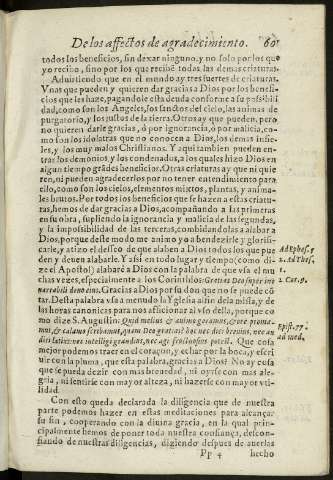 De los affectos de agradecimiento. 60
todos los beneficios, sin dexar ninguno, y no solo por los que
yo recibo, sino por los que reciben todas las demas criaturas.
Aduirtiendo que en el mundo ay tres suertes de criaturas.
Vnas que pueden y quieren dar gracias a Dios por los benefi-
cios que les haze, pagandole esta deuda conforme a su possibili
dad, como son los Angeles, los sanctos del cielo, las animas de
purgatorio, y los justos de la tierra. Otros ay que pueden, pero
no quieren darle gracias, ò por ignorancia, ò por malicia, como
son los idolatras que no conocen a Dios, los demas infie-
les, y los muy malos Christianos. Y aqui tambien pueden en-
trar los demonios y los condenados, a los quales hizo Dios en
algun tiempo grãdes beneficios. Otras criaturas ay que ni quie
ren, ni pueden agradecerlos por no tener entendimiento para
ello, como son los cielos, elementos mixtos, plantas, y anima-
les brutos. Por todos los beneficios que se hazen a estas criatu-
ras, hemos de dar gracias a Dios, acompañando a las primeras
en su obra, supliendo la ignorancia y malicia de las segundas,
y la impossibilidad de las terceras, combidandolas a alabar a
Dios, porque deste modo me animo yo a bendezirle y glorifi-
carle, y atizo el desseo de que alaben a Dios todos los que pue
den y deuen alabarle. Y assi en todo lugar y tiempo (como di-
ze el Apostol) alabaré a Dios con la palabra de que vsa el mu
chas vezes, especialmente a los Corinthios: Gratias Deo super ine
narrabili dono eius. Gracias a Dios por su don que no se puede cõ
tar. Desta palabra vsa a menudo la Yglesia en fin de la missa, y de
las horas canonicas para nos aficionar al vso della, porque co-
mo dize S. Augustin: Quid melius & animo geramus, & ore proma-
mus, & calamo scribamus, quam Deo gratias? hoc nec dici breuius, nec au
diri lætius nec intelligi grandius, nec agi fructuosius potest. Que cosa
mejor podemos traer en el coraçon, y echar por la boca, y escri
uir con la pluma, que esta palabra, gracias a Dios? No ay cosa
que se pueda dezir con mas breuedad, ni oyrse con mas ale-
gria, ni sentirse con mayor alteza, ni hazerse con mayor vti-
lidad.
Con esto queda declarada la diligencia que de nuestra
parte podemos hazer en estas meditaciones para alcançar
su fin, cooperando con la diuina gracia, en la qual princi-
palmente hemos de poner toda nuestra confiança, descon-
fiando de nuestras diligencias, diziendo despues de auerlas
Pp 4 hecho
Ad Ephes. 5
1. ad Thes.
2. Cor. 9.
Epist. 77.
ad Med.